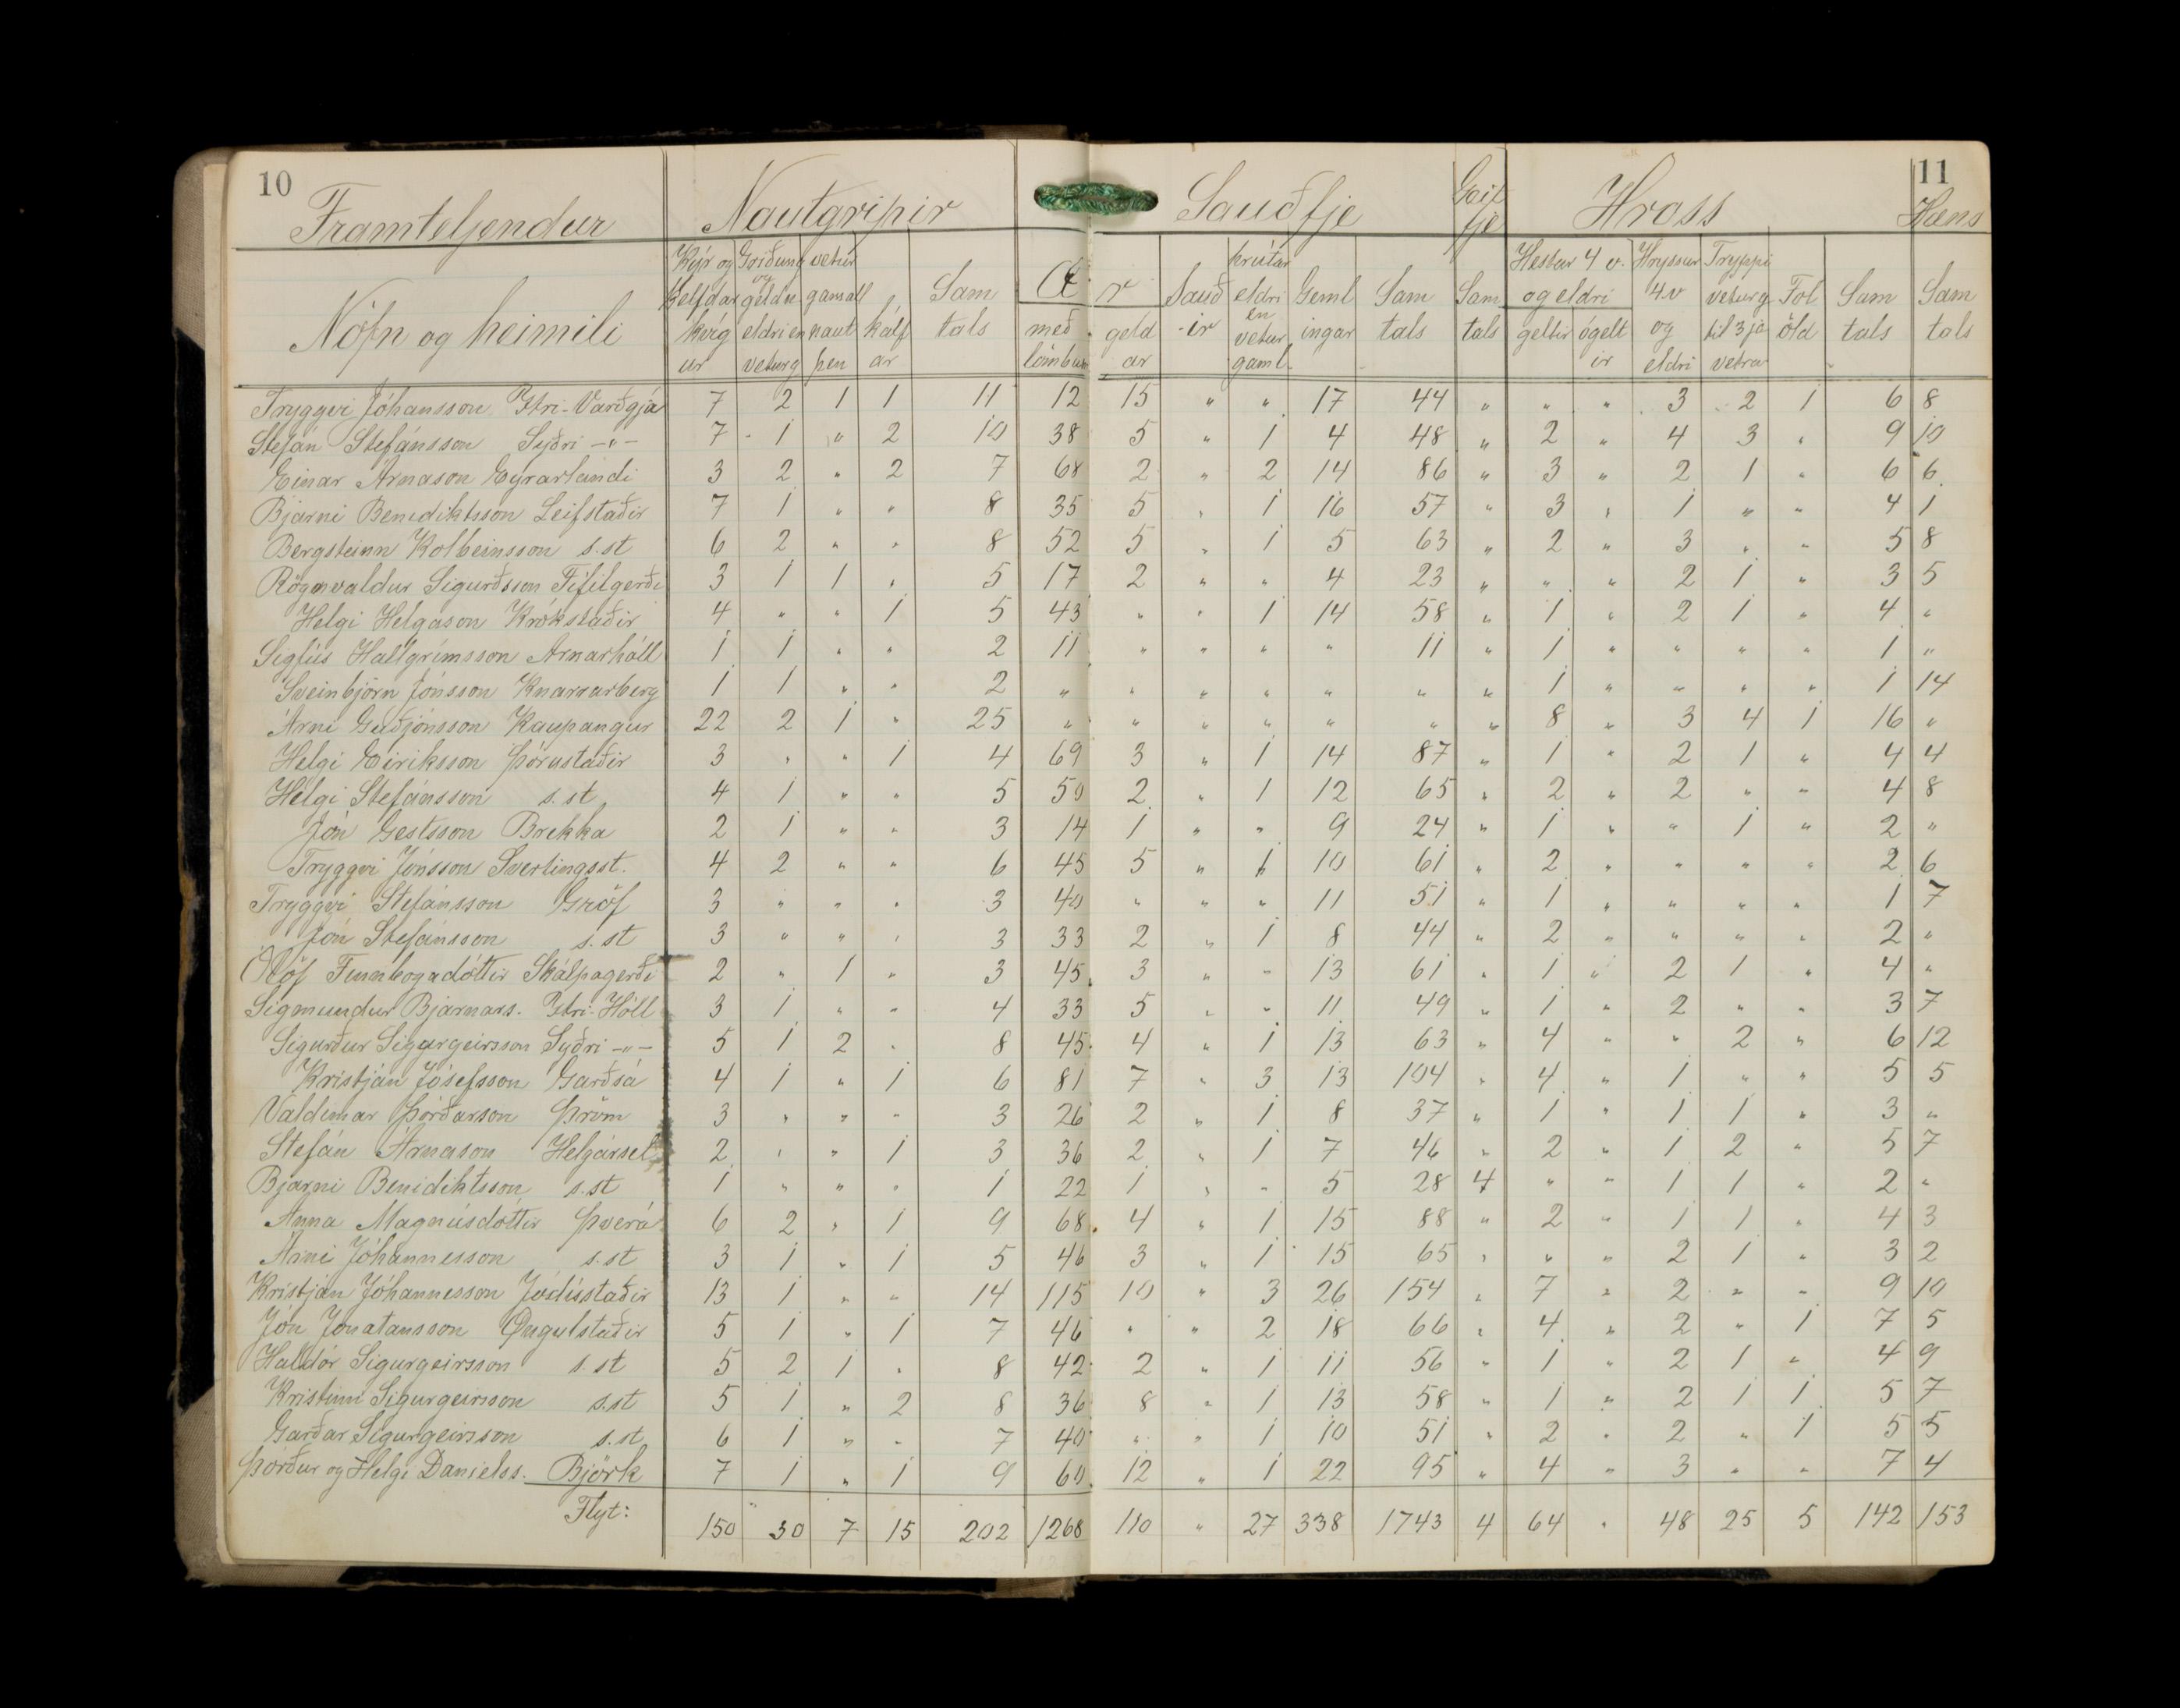 10 11
Framteljendur Nautgripir Sauðfje Geit fje Hross Hæns
Nöfn og heimili Kýr og kelfdar kvíg ur Griðung og geldn eldri en veturg vetur gamall naut pen kálf ar Sam tals Æ r með lömbum geld ar Sauð -ir hrútar eldri en vetur gaml. Geml ingar Sam tals Sam tals Hestar 4 v. og eldri geltir ógelt ir Hryssur 4v og eldri Tryppi veturg til 3 ja vetra Fol öld Sam tals Sam tals
Tryggvi Jóhansson Ytri-Varðgjá 7 2 1 1 11 12 15 " " 17 44 " " " 3 2 1 6 8
Stefán Stefánsson Syðri -"- 7 1 " 2 10 38 5 " 1 4 48 " 2 " 4 3 " 9 10
Einar Árnason Eyrarlandi 3 2 " 2 7 68 2 " 2 14 86 " 3 " 2 1 " 6 6
Bjarni Benediktsson Leifstaðir 7 1 " " 8 35 5 " 1 16 57 " 3 " 1 " " 4 1
Bergsteinn Kolbeinsson s.st 6 2 " " 8 52 5 " 1 5 63 " 2 " 3 " " 5 8
Rögnvaldur Sigurðsson Fífilgerði 3 1 1 " 5 17 2 " " 4 23 " " " 2 1 " 3 5
Helgi Helgason Krókstaðir 4 " " 1 5 43 " " 1 14 58 " 1 " 2 1 " 4 "
Sigfús Hallgrímsson Arnarhóll 1 1 " " 2 11 " " " " 11 " 1 " " " " 1 "
Sveinbjörn Jónsson Knararberg 1 1 " " 2 " " " " " " " 1 " " " " 1 14
Árni Guðjónsson Kaupangur 22 2 1 " 25 " " " " " " " 8 " 3 4 1 16 "
Helgi Eiriksson Þórustaðir 3 " " 1 4 69 3 " 1 14 87 " 1 " 2 1 " 4 4
Helgi Stefánsson s.st 4 1 " " 5 50 2 " 1 12 65 " 2 " 2 " " 4 8
Jón Gestsson Brekka 2 1 " " 3 14 1 " " 9 24 " 1 " " 1 " 2 "
Tryggvi Jónsson Svertingsst. 4 2 " " 6 45 5 " 1 10 61 " 2 " " " " 2 6
Tryggvi Stefánsson Gröf 3 " " " 3 40 " " " 11 51 " 1 " " " " 1 7
Jón Stefánsson s.st 3 " " " 3 33 2 " 1 8 44 " 2 " " " " 2 "
Ólöf Finnbogadóttir Skálpagerði 2 " 1 " 3 45 3 " " 13 61 " 1 " 2 1 " 4 "
Sigmundur Bjarnars. Ytri-Hóll 3 1 " " 4 33 5 " " 11 49 " 1 " 2 " " 3 7
Sigurður Sigurgeirsson Syðri -"- 5 1 2 " 8 45 4 " 1 13 63 " 4 " " 2 " 6 12
Kristján Jósefsson Garðsá 4 1 " 1 6 81 7 " 3 13 104 " 4 " 1 " " 5 5
Valdimar Þórðarson Þröm 3 " " " 3 26 2 " 1 8 37 " 1 " 1 1 " 3 "
Stefán Árnason Helgársel 2 " " 1 3 36 2 " 1 7 46 " 2 " 1 2 " 5 7
Bjarni Benidiktsson s.st 1 " " " 1 22 1 " " 5 28 4 " " 1 1 " 2 "
Anna Magnúsdóttir Þverá 6 2 " 1 9 68 4 " 1 15 88 " 2 " 1 1 " 4 3
Árni Jóhannesson s.st 3 1 " 1 5 46 3 " 1 15 65 " " " 2 1 " 3 2
Kristján Jóhannesson Jódísstaðir 13 1 " " 14 115 10 " 3 26 154 " 7 " 2 " " 9 10
Jón Jónatansson Öngulstaðir 5 1 " 1 7 46 " " 2 18 66 " 4 " 2 " 1 7 5
Halldór Sigurgeirsson s.st 5 2 1 " 8 42 2 " 1 11 56 " 1 " 2 1 " 4 9
Kristinn Sigurgeirsson s.st 5 1 " 2 8 36 8 " 1 13 58 " 1 " 2 1 1 5 7
Garðar Sigurgeirsson s.st 6 1 " " 7 40 " " 1 10 51 " 2 " 2 " 1 5 5
Þórður og Helgi Danielss. Björk 7 1 " 1 9 60 12 " 1 22 95 " 4 " 3 " " 7 4
Flyt: 150 30 7 15 202 1268 110 " 27 338 1743 4 64 " 48 25 5 142 153